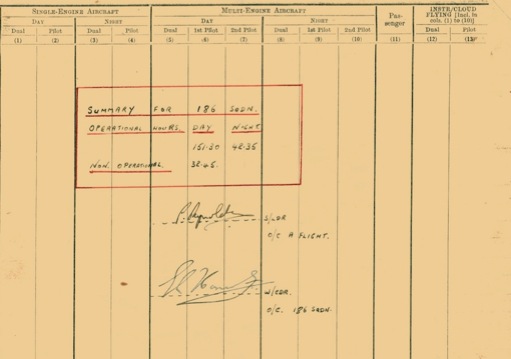 SINGLE-ENGINE AIRCRAFT MULTI-ENGINE AIRCRAFT Pas- INSTR/CLOUD
DAY NIGHT DAY NIGHT senger FLYING [Incl. in
cols. (1) to (10)]
Dual Pilot Dual Pilot Dual 1st Pilot 2nd Pilot Dual 1st Pilot 2nd Pilot Dual Pilot
(1) (2) (3) (4) (5) (6) (7) (8) (9) (10) (11) (12) (13)
SUMMARY FOR 186 SQDN.
OPERATIONAL HOURS. DAY NIGHT
151·30 42·35
NON. OPERATIONAL. 32·45.
S/LDR
O/C A FLIGHT.
W/CDR.
O/C. 186 SQDN.